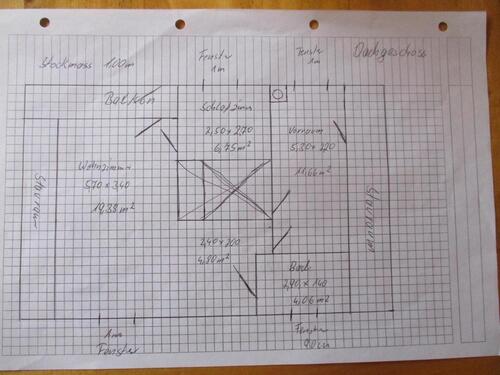 Stockmass 1,00m
Fenster
1m
Fenster
1m
Dachgeschoss
Balkon
Schlafzimm
2,50 x 270
6,75 m²
Vorraum
5,30 x 220
11,66 m²
Wohnzimmer
570 x 340
19,38 m²
Stauraum
Stauraum
2,40 x 200
4,80 m²
Bad
2,90 x 140
4,06 m²
1m
Fenster
Fenster
90cm